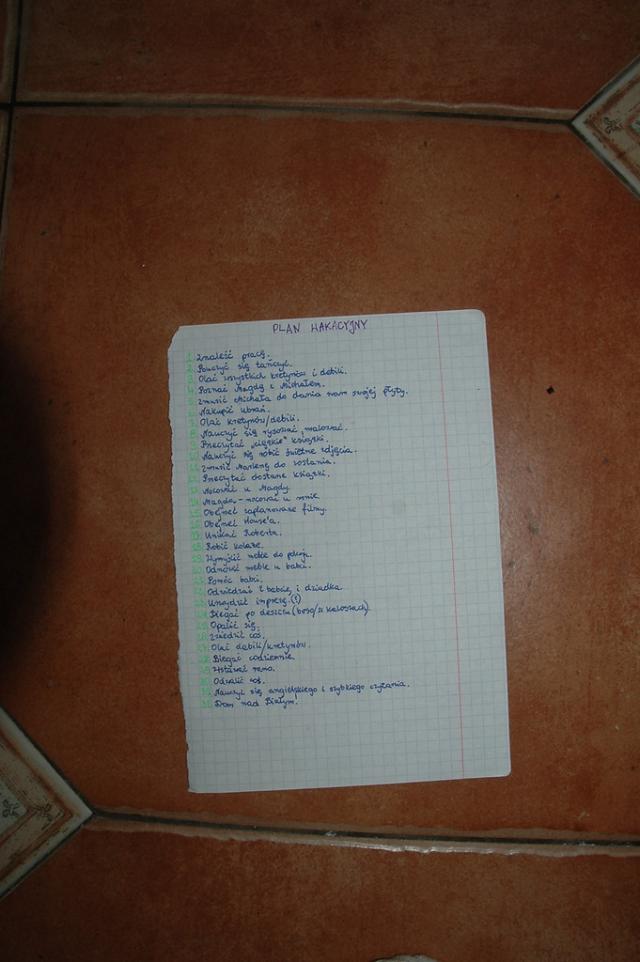 PLAN WAKACYJNY
1. Znaleźć pracę.
2. Nauczyć się tańczyć.
3. Olać wszystkich kretynów i debili.
4. Poznać Magdę z Michałem.
5. Zmusić Michała do dania nam swojej płyty.
6. Nakupić ubrań.
7. Olać kretynów/debili.
8. Nauczyć się rysować, malować.
9. Przeczytać „ciężkie" książki.
10. Nauczyć się robić świetne zdjęcia.
11. Zmusić Marlenę do zostania.
12. Przeczytać dostane książki.
13. Nocować u Magdy.
14. Magda - nocować u mnie.
15. Obejrzeć zaplanowane filmy.
16. Obejrzeć House'a.
17. Unikać Roberta.
18. Robić kolaże.
19. Wymyślić meble do pokoju.
20. Odnowić meble u babci.
21. Pomóc babci.
22. Odwiedzić 2 babcię i dziadka.
23. Urządzić imprezę.(?)
24. Biegać po deszczu (boso/w kaloszach)
25. Opalić się.
26. Zwiedzić coś.
27. Olać debili/kretynów.
28. Biegać codziennie.
29. Wstawać rano.
30. Odwalić coś.
31. Nauczyć się angielskiego i szybkiego czytania.
32. Dom nad Białym.